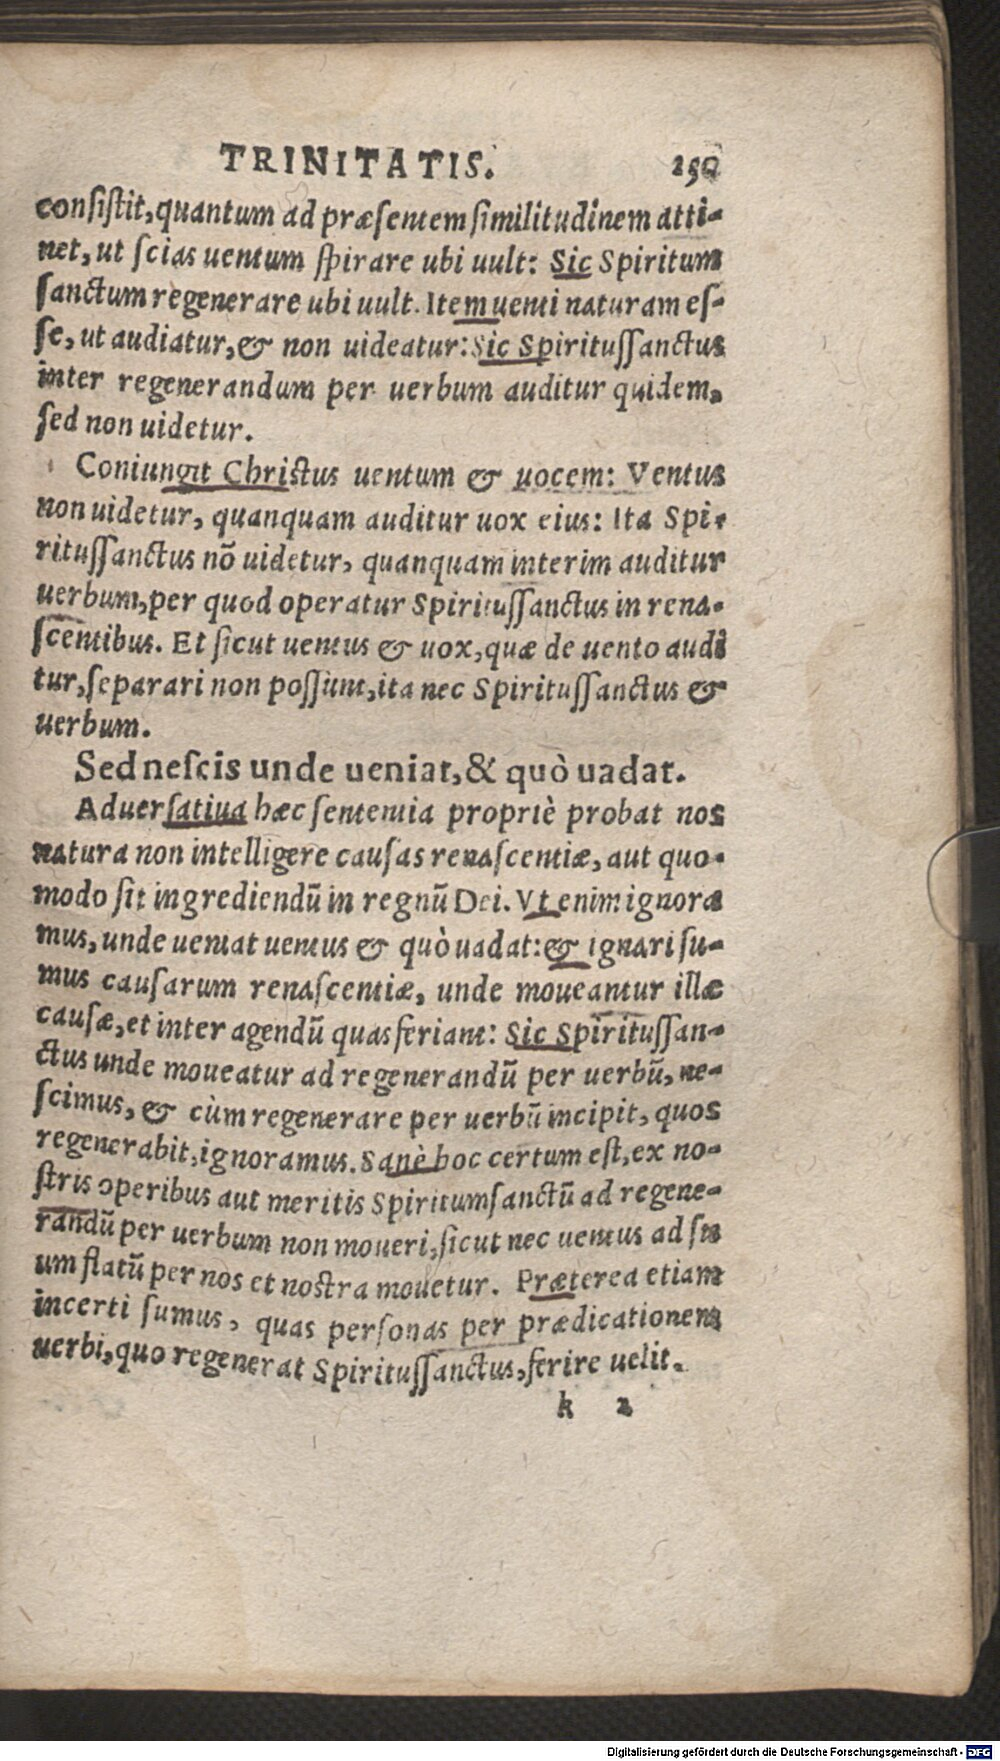 TRINITATIS. 150
consistit, quantum ad præsentem similitudinem atti-
net, ut scias uentum spirare ubi uult: Sic Spiritum
sanctum regenerare ubi uult. Item uenti naturam es-
se, ut audiatur, & non uideatur: Sic Spiritussanctus
inter regenerandum per uerbum auditur quidem,
sed non uidetur.
Coniungit Christus uentum & uocem: Ventus
non uidetur, quanquam auditur uox eius: Ita Spi-
ritussanctus nõ uidetur, quanquam interim auditur
uerbum, per quod operatur Spiritussanctus in rena-
scentibus. Et sicut uentus & uox, quæ de uento audi
tur, separari non possunt, ita nec Spiritussanctus &
uerbum.
Sed nescis unde ueniat, & quò uadat.
Aduersatiua hæc sententia propriè probat nos
natura non intelligere causas renascentiæ, aut quo-
modo sit ingrediendũ in regnũ Dei. Vt enim ignora
mus, unde ueniat uentus & quò uadat: & ignari su-
mus causarum renascentiæ, unde moueantur illæ
causæ, et inter agendũ quas feriant: Sic Spiritussan-
ctus unde moueatur ad regenerandũ per uerbũ, ne-
scimus, & cùm regenerare per uerbũ incipit, quos
regenerabit, ignoramus. Sanè hoc certum est, ex no-
stris operibus aut meritis Spiritumsanctũ ad regene-
randũ per uerbum non moueri, sicut nec uentus ad su
um flatũ per nos et nostra mouetur. Præterea etiam
incerti sumus, quas personas per prædicationem
uerbi, quo regenerat Spiritussanctus, ferire uelit.
k 2
Digitalisierung gefördert durch die Deutsche Forschungsgemeinschaft - DFG